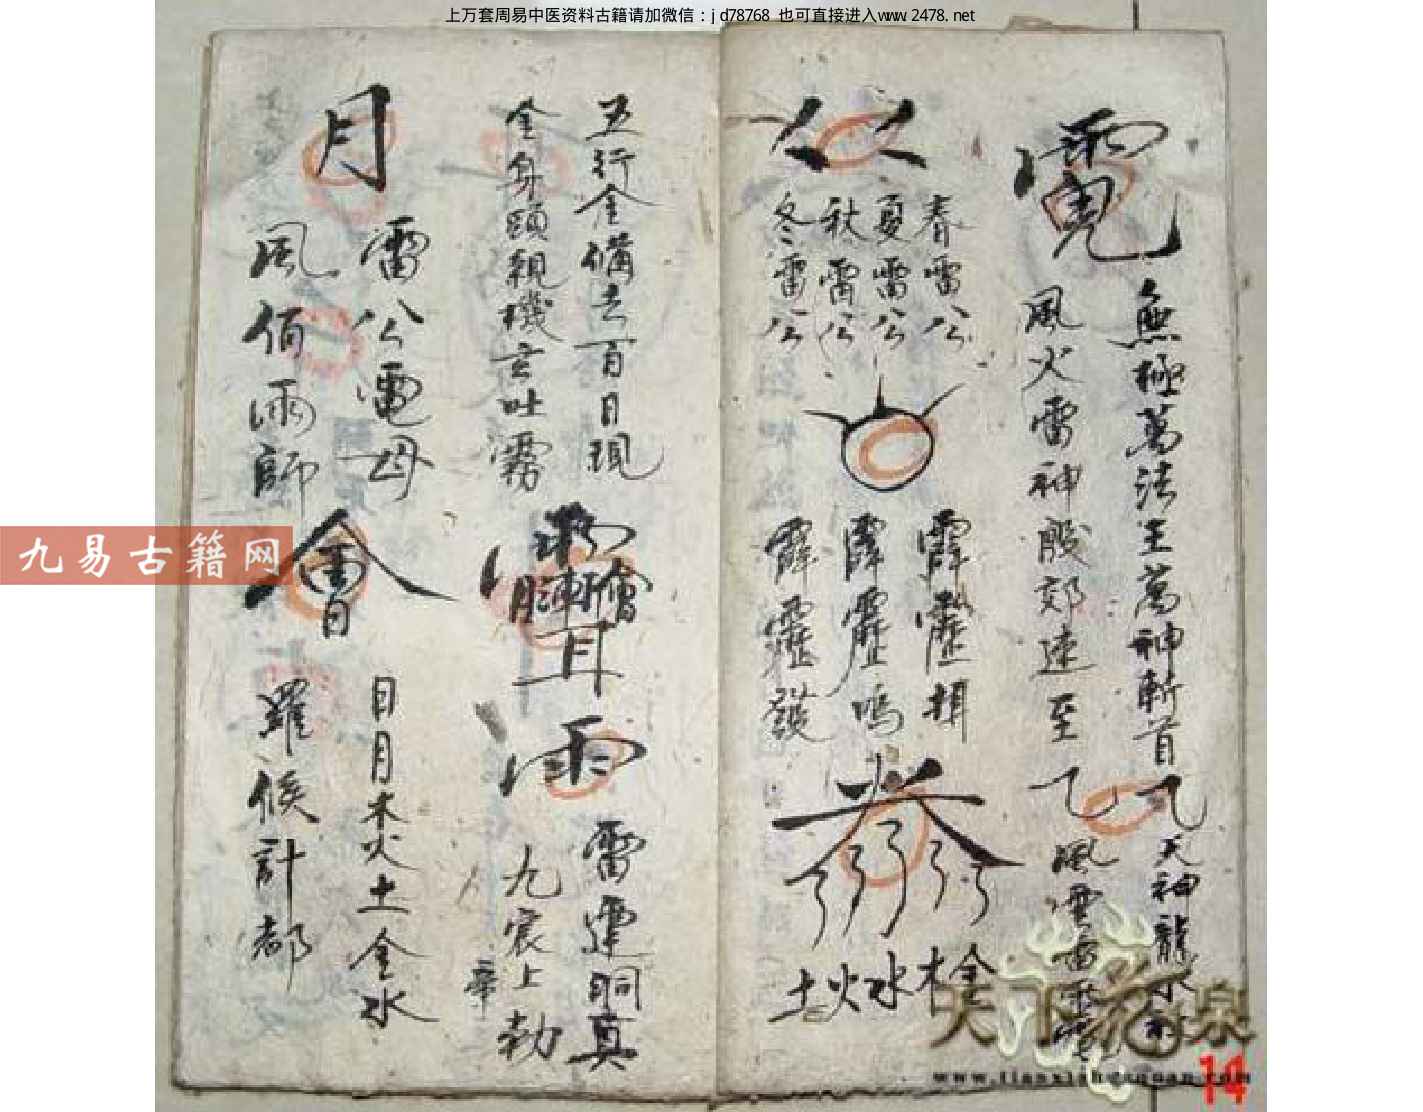 上万套周易中医资料古籍请加微信：jd78768 也可直接进入www.2478.net
無極萬法王萬神斬首
風火雷神殷郊速至
天神龍
風雲雷
春雷公
夏雷公
秋雷公
冬雷公
霹靂揖
霹靂鳴
霹靂發
金
木
水
火
土
五行金備去百日現
金身頭親機玄吐霧
雨
雷霆洞真
九宸上勅
月
雷公電母
風伯雨師
日月木火土金水
羅候計都
九易古籍网
天下 泉
14